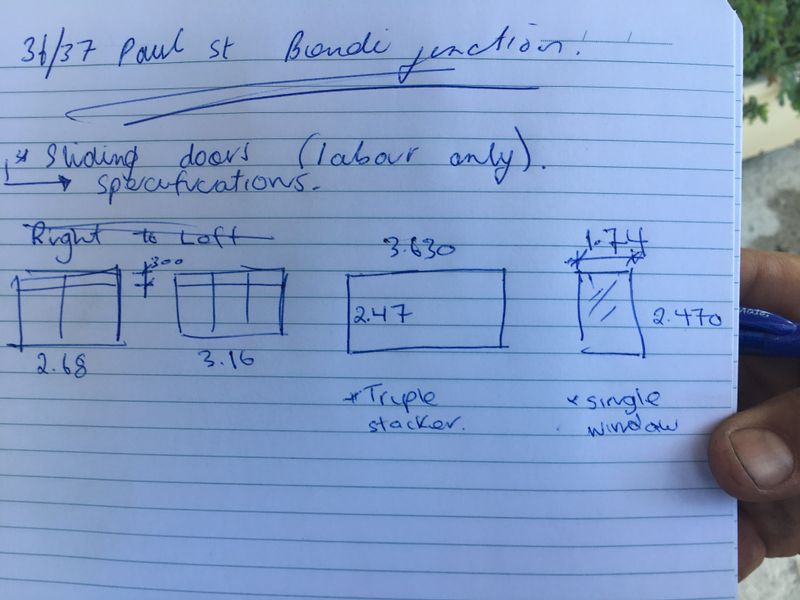 36/37 Paul st Bondi junction.
* Sliding doors (labour only).
→ specifications.
Right to Left
300
2.68
3.16
3.630
2.47
* Triple
stacker.
1.74
2.470
* single
window